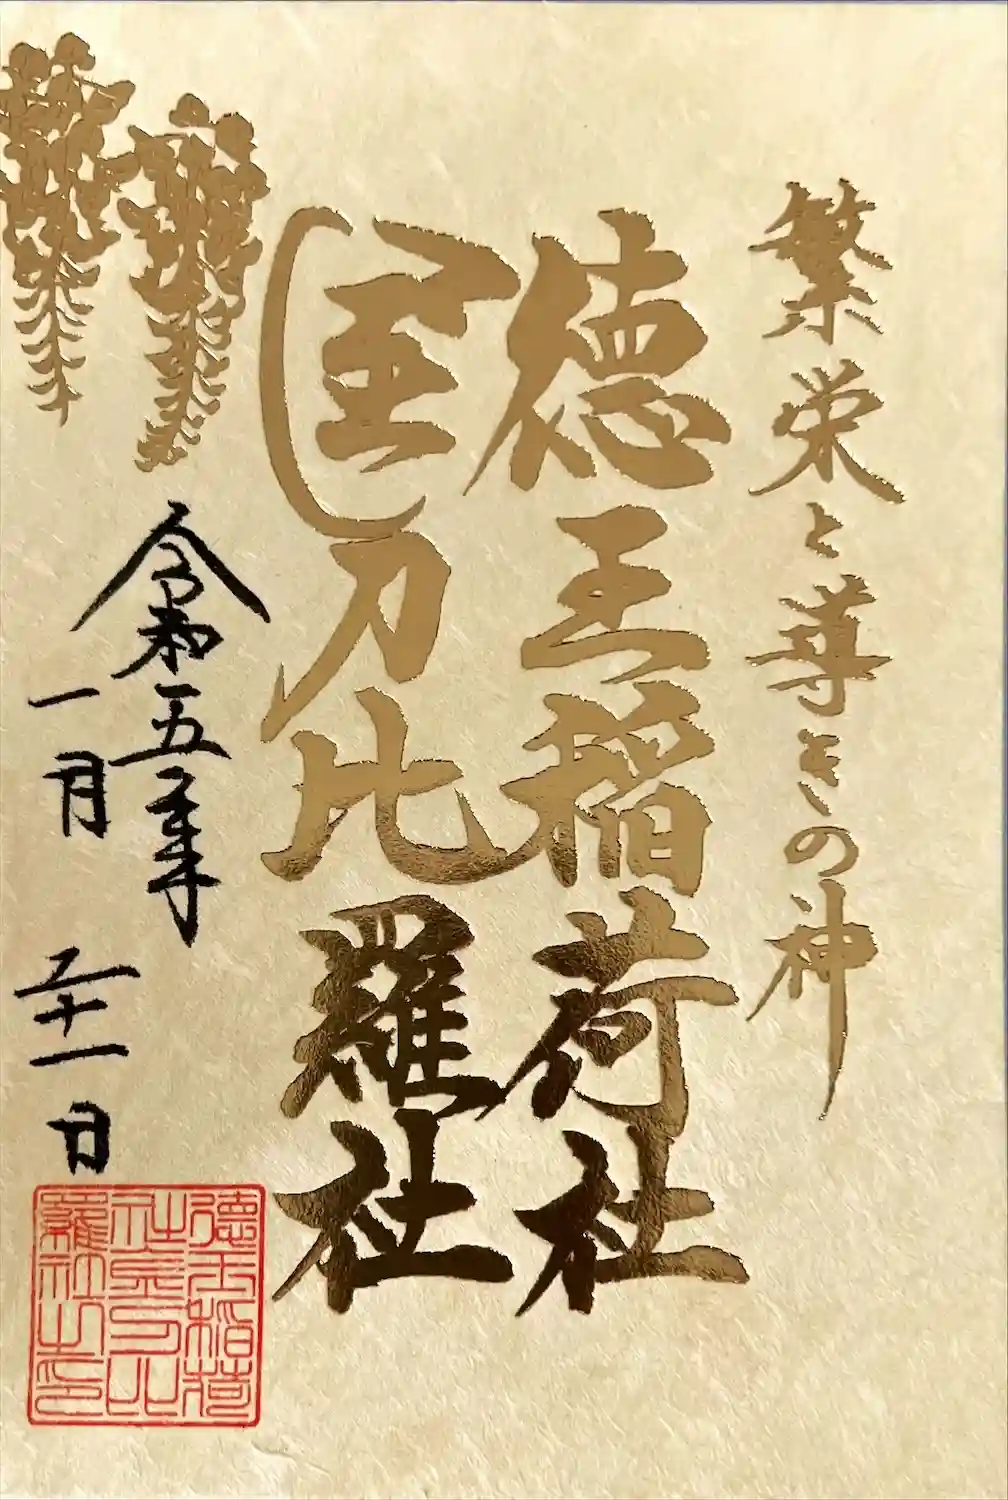 繁栄と尊きの神
徳王稲荷社
金刀比羅社
令和五年
一月
二十一日
徳王稲荷
社金刀比
羅社之印